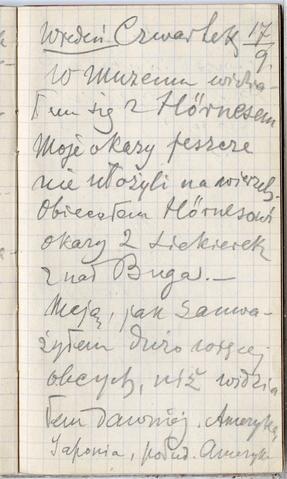 Wiedeń Czwartek 17/9.
W muzeum widzia-
łem się z Hörnesem
Moje okazy jeszcze
nie ułożyli na wierzch.
Obiecałem Hörnesowi
okazy z Siekierek
z nad Buga. —
Mają, jak zauwa-
żyłem dużo więcej
obcych, niż widzia
łem dawniej. Ameryka,
Japonia, połud. Ameryka